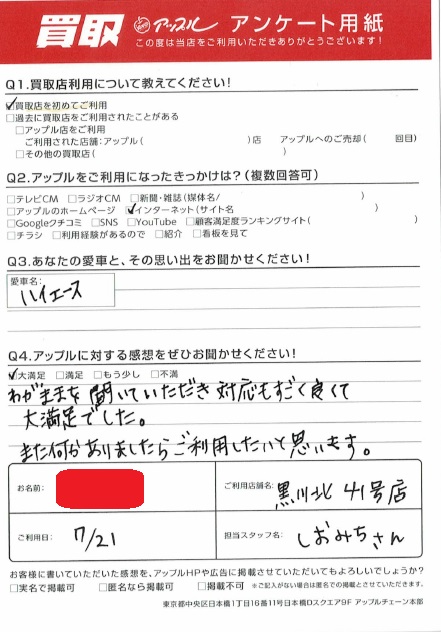 買取 アップル アンケート用紙
この度は当店をご利用いただきありがとうございます！
Q1.買取店利用について教えてください！
☑買取店を初めてご利用
□過去に買取店をご利用されたことがある
□アップル店をご利用
ご利用された店舗：アップル（　）店　アップルへのご売却（　回目）
□その他の買取店（　）
Q2.アップルをご利用になったきっかけは？（複数回答可）
□テレビCM □ラジオCM □新聞・雑誌（媒体名/　）
□アップルのホームページ ☑インターネット（サイト名　）
□Googleクチコミ □SNS □YouTube □顧客満足度ランキングサイト（　）
□チラシ □利用経験があるので □紹介 □看板を見て
Q3.あなたの愛車と、その思い出をお聞かせください！
愛車名：
ハイエース
Q4.アップルに対する感想をぜひお聞かせください！
☑大満足 □満足 □もう少し □不満
わがままを聞いていただき対応もすごく良くて
大満足でした。
また何かありましたらご利用したいと思います。
お名前：
ご利用店舗名：黒川北41号店
ご利用日：7/21
担当スタッフ名：しおみちさん
お客様に書いていただいた感想を、アップルHPや広告に掲載させていただいてもよろしいでしょうか？
□実名で掲載可 □匿名なら掲載可 □掲載不可 ※ご記入がない場合は匿名での掲載とさせていただきます。
東京都中央区日本橋1丁目16番11号日本橋Dスクエア9F アップルチェーン本部